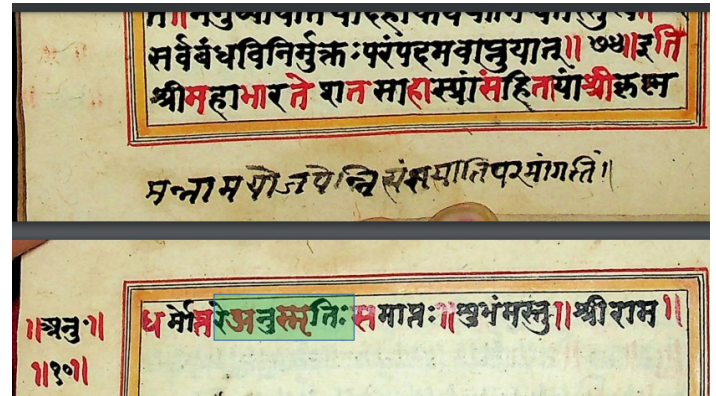 सर्वबंधविनिर्मुक्तःपरंपदमवाप्नुयात्॥ ७५॥इति
श्रीमहाभारते शतसाहास्यांसंहितायांश्रीकृष्ण
मन्नामयोजपेन्नि यातिपरमांगतिं॥
॥अनुः॥
॥१०॥
धर्मोत्तरेअनुस्मृतिःसमाप्तः॥शुभंमस्तु॥श्रीराम॥